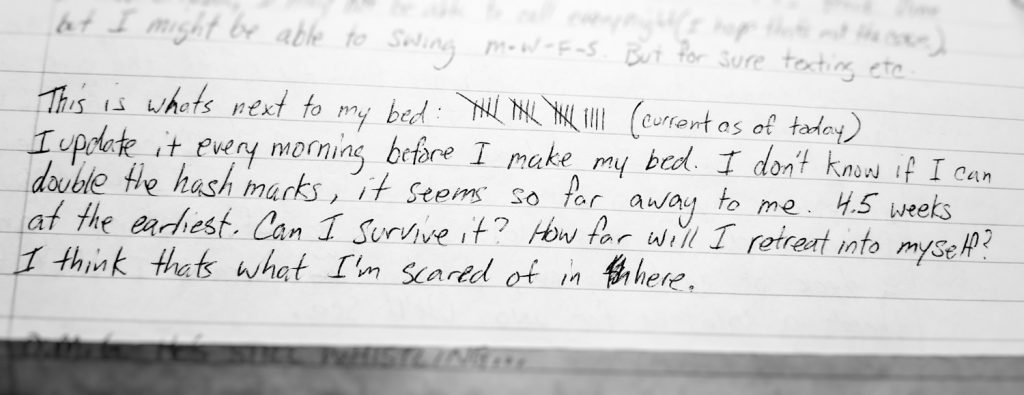 be able to call everynight (I hope thats not the case)
but I might be able to swing M-W-F-S. But for sure texting etc.
This is whats next to my bed: 卌 卌 卌 |||| (current as of today)
I update it every morning before I make my bed. I don't know if I can
double the hash marks, it seems so far away to me. 4.5 weeks
at the earliest. Can I survive it? How far will I retreat into myself?
I think thats what I'm scared of in here.
STILL WHISTLING...